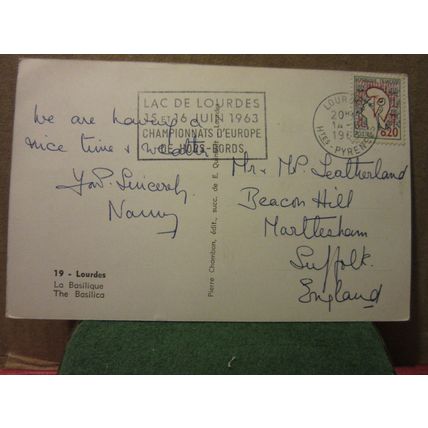 LAC DE LOURDES
15 ET 16 JUIN 1963
CHAMPIONNATS D'EUROPE
DE HORS-BORDS
LOURDES
20H
14-
196
HTES-PYRENEES
0,20
We are having a
nice time & weather
Yours Sincerely
Nanny
Mr & Mrs P. Leatherland
Beacon Hill
Martlesham
Suffolk.
England
Pierre Chambon, édit., succ. de E.
19 - Lourdes
La Basilique
The Basilica